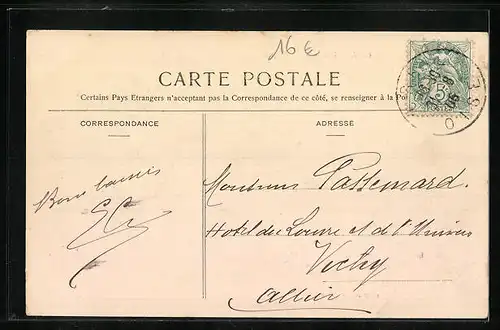 16 €
CARTE POSTALE
Certains Pays Etrangers n'acceptant pas la Correspondance de ce côté, se renseigner à la
CORRESPONDANCE
ADRESSE
Monsieur Passemard.
Hotel du Louvre et de l'Univers
Vichy
Allier
Bons baisers
5
OISE